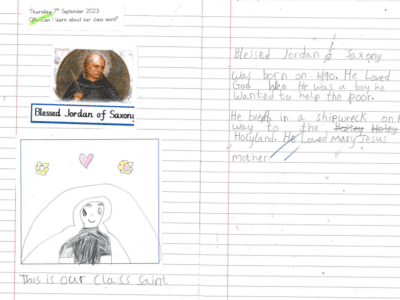 Thursday 7th September 2023
Can I learn about our class saint?
Blessed Jordan of Saxony
This is our Class Saint
Blessed Jordan of Saxony
was born on 1190. He Loved
God. When He was a boy he
wanted to help the poor.
He in a shipwreck on
way to the Holey Holey
Holyland. He Loved Mary Jesus
mother